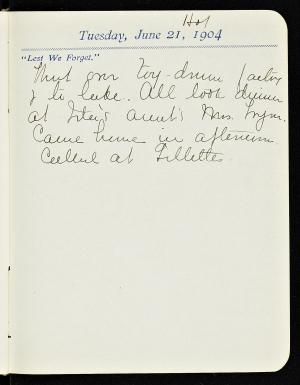 Hot
Tuesday, June 21, 1904
"Lest We Forget."
Went over toy-drum factory
& to lake. All took dinner
at aunt's Mrs.
Came home in afternoon
Called at Gillettes